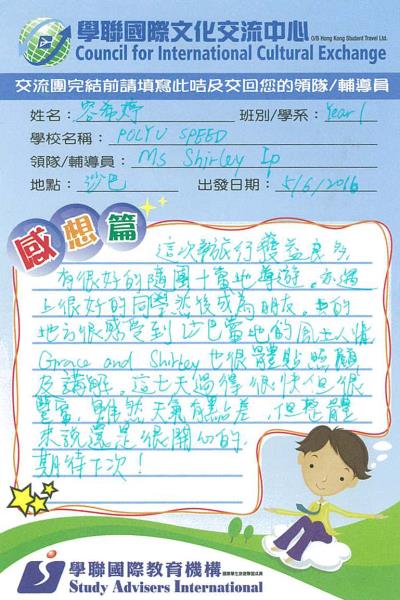 學聯國際文化交流中心 O/B Hong Kong Student Travel Ltd.
Council for International Cultural Exchange
交流團完結前請填寫此咭及交回您的領隊/輔導員
姓名：容希婷 班別/學系：Year 1
學校名稱：POLYU SPEED
領隊/輔導員：Ms Shirley Ip
地點：沙巴 出發日期：5/6/2016
感想篇
這次旅行獲益良多,
有很好的隨團十當地導遊. 亦遇
上很好的同學然後成為朋友.
地方很感受到沙巴當地的風土人情
Grace and Shirley 也很體貼照顧
及講解. 這七天過得很快但很
豐富, 雖然天氣有點差, 但整體
來說還是很開心的,
期待下次!
學聯國際教育機構
Study Advisers International